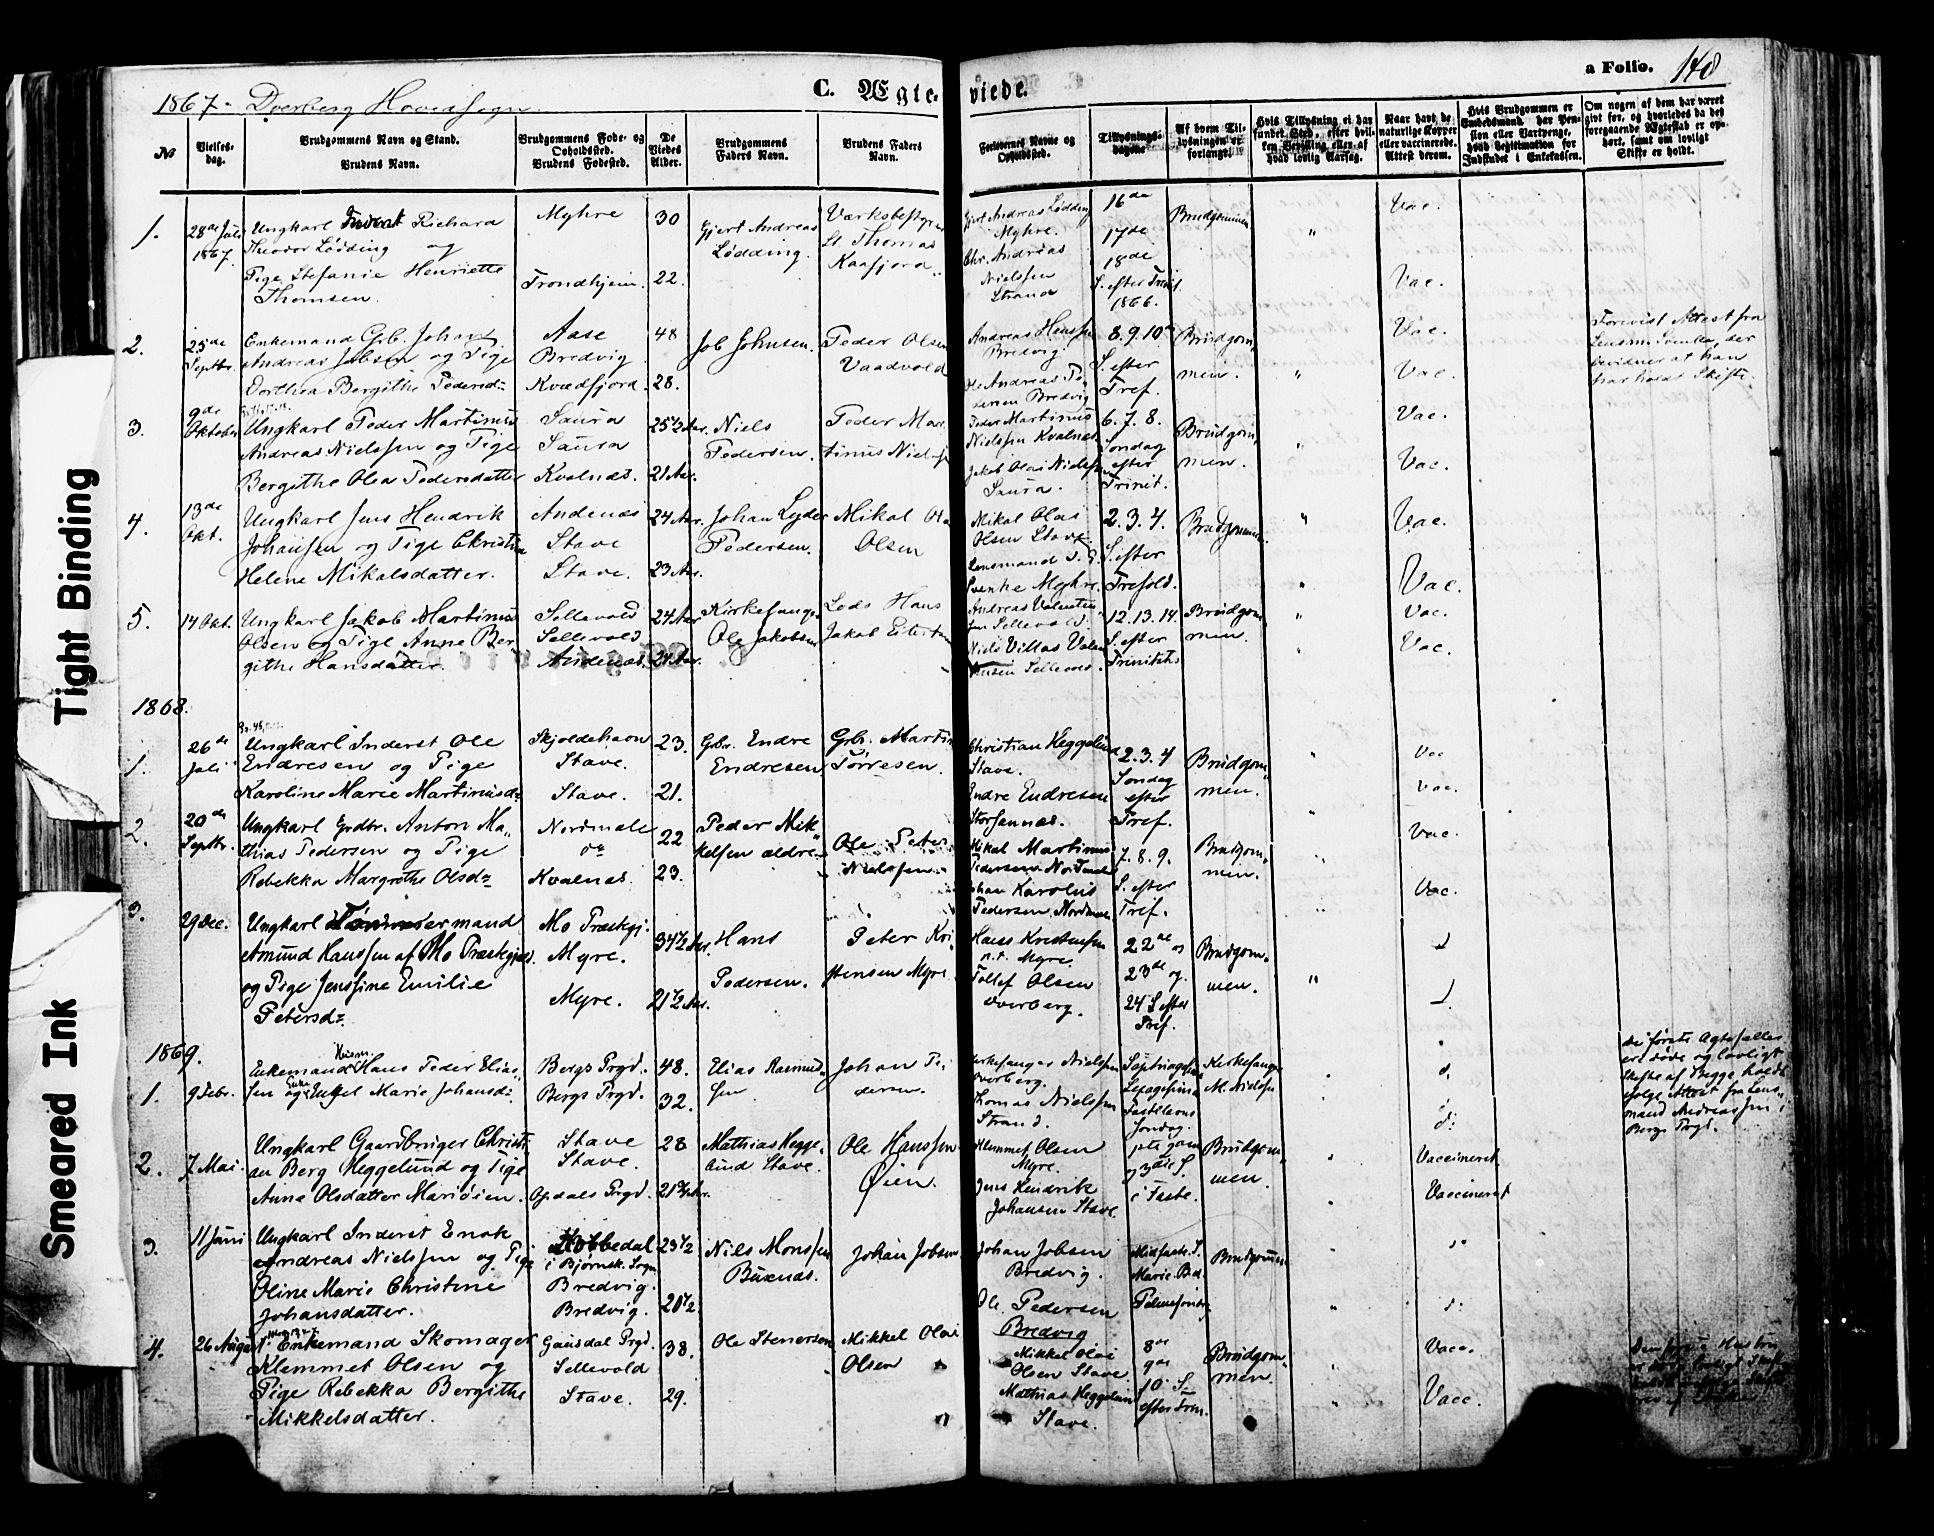 Tight Binding
Smeared Ink
C. Ægte-viede.
a Folio. 148
1867. Dverberg Hovedsogn
No
Vielses-dag.
Brudgommens Navn og Stand.
Brudens Navn.
Brudgommens Føde- og Opholdssted.
Brudens Fødested.
De Viedes Alder.
Brudgommens Faders Navn.
Brudens Faders Navn.
Forlovernes Navne og Opholdssted.
Tillysnings-dagene
Af hvem Til-lysningen er forlangt.
Hvis Tillysning ei har fundet Sted, efter hvil-ken Bevilling eller af hvad lovlig Aarsag.
Naar havt de naturlige Kopper eller vaccinerede. Attest derom.
Hvis Brudgommen er Embedsmand har Pen-sion eller Vartpenge, hvad Legitimation for Indskudet i Enkekassen.
Om nogen af dem har været gift før, og hvorledes da det foregaaende Ægteskab er op-hørt, samt om lovligt Skifte er holdt.
1. 28de Juli 1867.
Ungkarl Richard
Theodor Lødding og
Pige Stefanie Henriette
Thomsen.
Myhre
Trondhjem.
30
22.
Gjert Andreas
Lødding.
Værksbestyrer
Thomas
Kaafjord.
Gjert Andreas Lødding
Myhre.
Chr. Andreas
Nielssen
Strand
16de
17de
18de
S. efter Trinit.
1866.
Brudgommen
Vac.
Vac.
2. 25de Septbr.
Enkemand Grb. Johan
Andreas Jobsen og Pige
Dorthea Bergithe Pedersd.
Aase
Bredvig
Kvædfjord.
48
28.
Job Johnsen.
Peder Olsen
Vaadvold
Andreas Hanssen
Bredvig.
Ole Andreas Pe-
dersen Bredvig
8. 9. 10de
S. efter
Tref.
Brudgom-
men.
Vac.
Vac.
Forevist Attest fra
der
bevidner at han
har holdt Skifte.
3. 9de Oktober
Ungkarl Peder Martinus
Andreas Nielssen og Pige
Bergithe Olea Pedersdatter
Saura
Saura
Kvalnæs.
25 1/2 Aar.
21 Aar.
Niels
Pedersen.
Peder Mar-
tinus Nielss
Peder Martinus
Nielssen Kvalnæs
Jakob Olai Nielssen
Saura.
6. 7. 8.
Søndag
efter
Trinit.
Brudgom-
men.
Vac.
Vac.
4. 13de Okt.
Ungkarl Jens Hendrik
Johanssen og Pige Christin
Helene Mikalsdatter.
Andenæs
Stave
Stave.
24 Aar.
23 Aar.
Johan Lyder
Pedersen.
Mikal Ola
Olsen
Mikal Olai
Olsen Stave.
Lensmand
Myhre
2. 3. 4.
S. efter
Trefold.
Brudgommen.
Vac.
Vac.
5. 14 Okt.
Ungkarl Jakob Martinus
Olsen og Pige Anne Ber-
githe Hansdatter.
Sellevold
Sellevold
Andenæs.
24 Aar
21 Aar.
Kirkesanger
Ole Jakobsen
Lods Hans
Jakob
Andreas Valentin-
sen Sellevold.
Niels Villas Valen-
tinsen Sellevold.
12. 13. 14.
S. efter
Trinitatis
Brudgom-
men.
Vac.
Vac.
1868.
1. 26de Juli
Ungkarl Inderst Ole
Endresen og Pige
Karoline Marie Martinusd.
Skjoldehavn
Stave.
Stave.
23.
21.
Gbr. Endre
Endresen
Grb. Martin
Torresen.
Christian Heggelund
Stave.
Endre Endresen
2. 3. 4
Søndag
efter
Tref.
Brudgom-
men.
Vac
Vac.
2. 20de Septbr.
Ungkarl Grdbr. Anton Ma-
thias Pedersen og Pige
Rebekka Margrethe Olsd.
Nordmele
do
Kvalnæs.
22
23.
Peder Mik-
kelsen ældre
Ole Peter
Nielssen.
Mikal Martinus
Pedersen Nordmele
Johan Karolius
Pedersen Nordmele
7. 8. 9.
S. efter
Tref.
Brudgom-
men.
Vac.
Vac.
3. 29 Dec.
Ungkarl Tømmermand
Amund Hanssen af Mo Præstgjeld.
og Pige Jenssine Emilie
Petersd.
Mo Præstgj.
Myre.
Myre.
34 1/2 Aar.
21 1/2 Aar.
Hans
Pedersen.
Peter Kri-
stensen Myre.
Hans Kristensen
Myre
Tollef Olsen
Dverberg.
22de og
23de og
24 S. efter
Tref.
Brudgom-
men.
1869.
1. 9 Febr.
Enkemand Husm. Hans Peder Elias-
sen og Enke Engel Marie Johansd.
Bergs Prgd.
Bergs Prgd.
48.
32.
Elias Rasmus-
sen
Johan Pe-
dersen.
Kirkesanger Nielssen
Dverberg.
Thomas Nielssen
Strand.
Septuagesima
Sexagesima
Fastelavns
Søndag.
Kirkesanger
M. Nielssen
De første Ægtefæller
ere døde og lovligt
Skifte af Begge holdt
ifølge Attest fra Lens-
mand Andreassen i
Bergs Prgd.
2. 7 Mai.
Ungkarl Gaardbruger Christi-
an Berg Heggelund og Pige
Anna Olsdatter Mariøsen.
Stave
Stave.
Opdals Prgd.
28
21 3/4 Aar.
Mathias Hegge-
lund Stave.
Ole Hanssen
Øien.
Klemmet Olsen
Myre.
Jens Hendrik
Johansen Stave.
og 3die S.
i Faste.
Brudgom-
men.
Vaccineret
Vaccineret
3. 11 Juni
Ungkarl Inderst Enok
Andreas Nielssen og Pige
Oline Marie Christine
Johansdatter.
Kobbedal
i Bjørnsk. Sogn
Bredvig.
Bredvig.
23 1/2
20 1/2
Nils Monssen
Buxnæs.
Johan Jobsen
Johan Jobsen
Bredvig.
Ole Pedersen
Bredvig
Midfaste S.
Marie Bd.
Palmesøndag
Brudgommen
4. 26 August
Enkemand Skomager
Klemmet Olsen og
Pige Rebekka Bergithe
Mikkelsdatter.
Gausdal Prgd.
Sellevold
Stave.
38.
29.
Ole Stenersen
Mikkel Olai
Olsen
Mikkel Olai
Olsen Stave.
Mathias Heggelund
Stave.
8de
9de
10. S.
efter Trin.
Brudgom-
men.
Vacc.
Vacc.